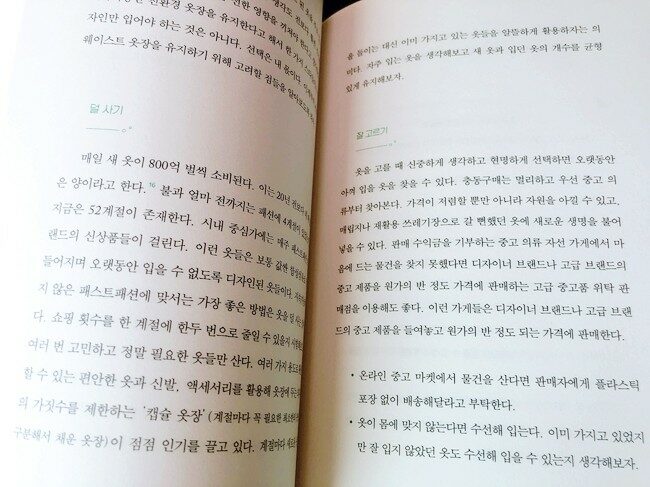 한 영향을 끼쳐야 한다.
친환경 옷장을 유지한다고 해서 한 가지
자인만 입어야 하는 것은 아니다. 선택은 내 몫이다.
웨이스트 옷장을 유지하기 위해 고려할 점들을
덜 사기
매일 새 옷이 800억 벌씩 소비된다. 이는 20년 전보다
은 양이라고 한다.16 불과 얼마 전까지는 패션에 4계절이
지금은 52계절이 존재한다. 시내 중심가에는 매주
랜드의 신상품들이 걸린다. 이런 옷들은 보통 값싼
들어지며 오랫동안 입을 수 없도록 디자인된 옷들이다.
지 않은 패스트패션에 맞서는 가장 좋은 방법은 옷을 덜
다. 쇼핑 횟수를 한 계절에 한두 번으로 줄일 수 있을지
여러 번 고민하고 정말 필요한 옷들만 산다. 여러 가지
할 수 있는 편안한 옷과 신발, 액세서리를 활용해
의 가짓수를 제한하는 '캡슐 옷장'(계절마다 꼭 필요한
구분해서 채운 옷장)이 점점 인기를 끌고 있다. 계절마다
을 들이는 대신 이미 가지고 있는 옷들을 알뜰하게 활용하자는 의
미다. 자주 입는 옷을 생각해보고 새 옷과 입던 옷의 개수를 균형
있게 유지해보자.
잘 고르기
옷을 고를 때 신중하게 생각하고 현명하게 선택하면 오랫동안
아껴 입을 옷을 찾을 수 있다. 충동구매는 멀리하고 우선 중고 의
류부터 찾아본다. 가격이 저렴할 뿐만 아니라 자원을 아낄 수 있고,
매립지나 재활용 쓰레기장으로 갈 뻔했던 옷에 새로운 생명을 불어
넣을 수 있다. 판매 수익금을 기부하는 중고 의류 자선 가게에서 마
음에 드는 물건을 찾지 못했다면 디자이너 브랜드나 고급 브랜드의
중고 제품을 원가의 반 정도 가격에 판매하는 고급 중고품 위탁 판
매점을 이용해도 좋다. 이런 가게들은 디자이너 브랜드나 고급 브랜
드의 중고 제품을 들여놓고 원가의 반 정도 되는 가격에 판매한다.
• 온라인 중고 마켓에서 물건을 산다면 판매자에게 플라스틱
포장 없이 배송해달라고 부탁한다.
• 옷이 몸에 맞지 않는다면 수선해 입는다. 이미 가지고 있었지
만 잘 입지 않았던 옷도 수선해 입을 수 있는지 생각해보자.